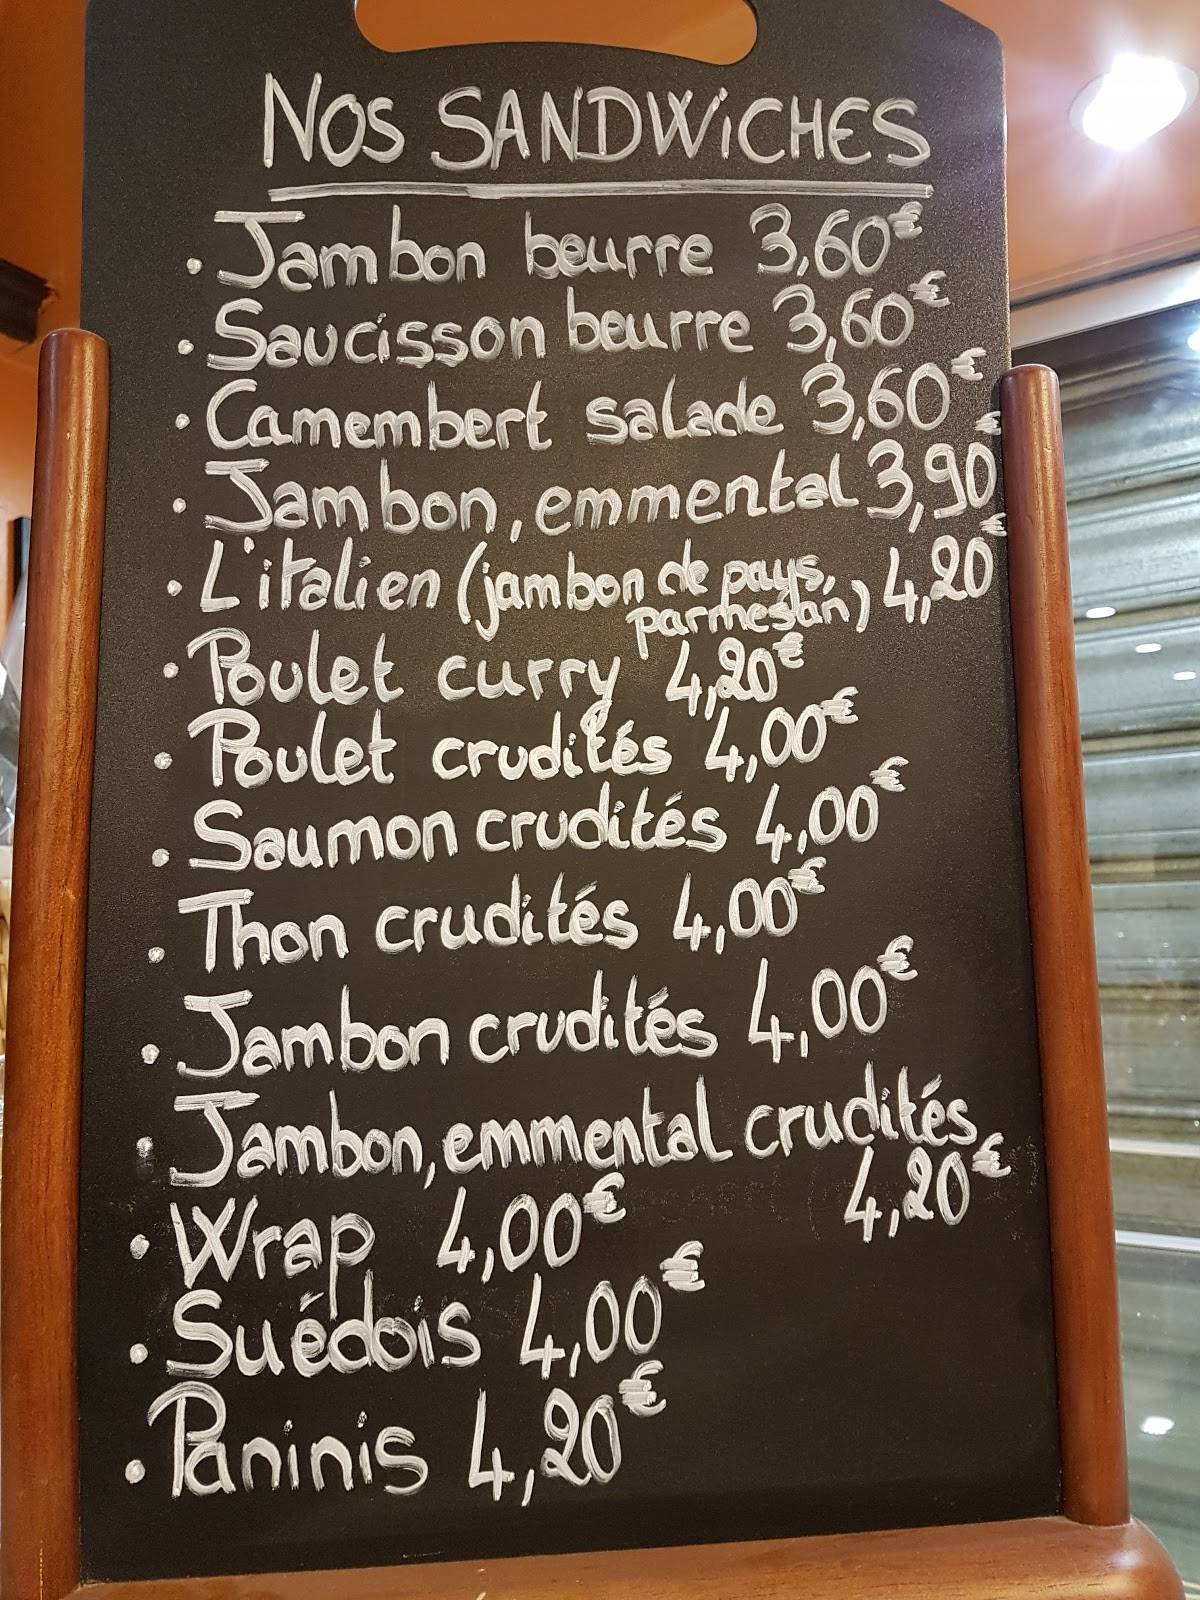 NOS SANDWiCHES
• Jambon beurre 3,60€
• Saucisson beurre 3,60€
• Camembert salade 3,60€
• Jambon, emmental 3,90€
• L'italien (jambon de pays, 4,20€
parmesan)
• Poulet curry 4,20€
• Poulet crudités 4,00€
• Saumon crudités 4,00€
• Thon crudités 4,00€
• Jambon crudités 4,00€
• Jambon, emmental crudités
4,20€
• Wrap 4,00€
• Suédois 4,00€
• Paninis 4,20€